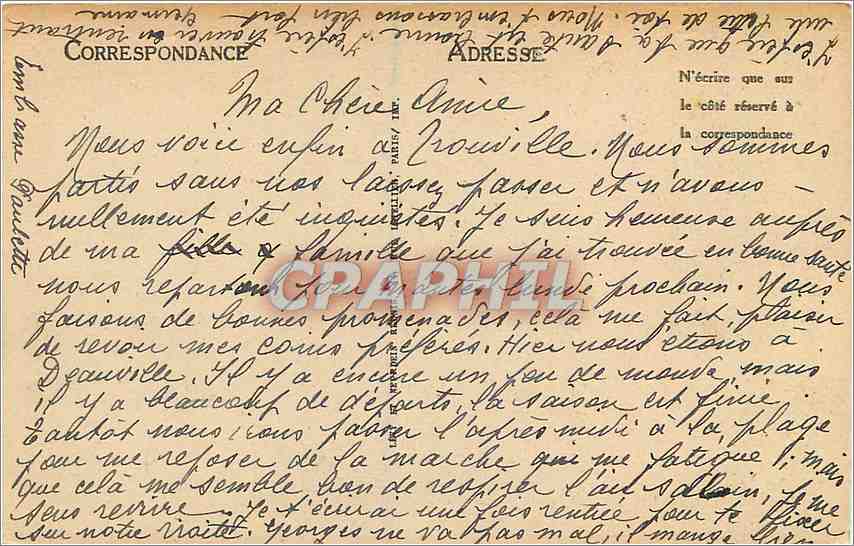 J'espère que ta Santé est bonne. J'espère trouver en rentrant
une lettre de toi. Nous t'embrassons bien fort
Germaine
CORRESPONDANCE
ADRESSE
N'écrire que sur
le côté réservé à
la correspondance
Embrasse Paulette
Ma Chère Amie,
Nous voici enfin à Trouville. Nous sommes
partis sans nos laissez passer et n'avons
nullement été inquiétés. Je suis heureuse auprès
de ma fille famille que j'ai trouvée en bonne santé
nous repartons pour Mantes lundi prochain. Nous
faisons de bonnes promenades, celà me fait plaisir
de revoir mes coins préférés. Hier nous étions à
Deauville. Il y a encore un peu de monde mais
il y a beaucoup de départs, la saison est finie.
Tantôt nous irons passer l'après midi à la plage
pour me reposer de la marche qui me fatigue, mais
que celà me semble bon de respirer l'air salin, je me
sens revivre. Je t'écrirai une fois rentrée pour te fixer
sur notre Georges ne va pas mal, il mange bien
CPARAMA